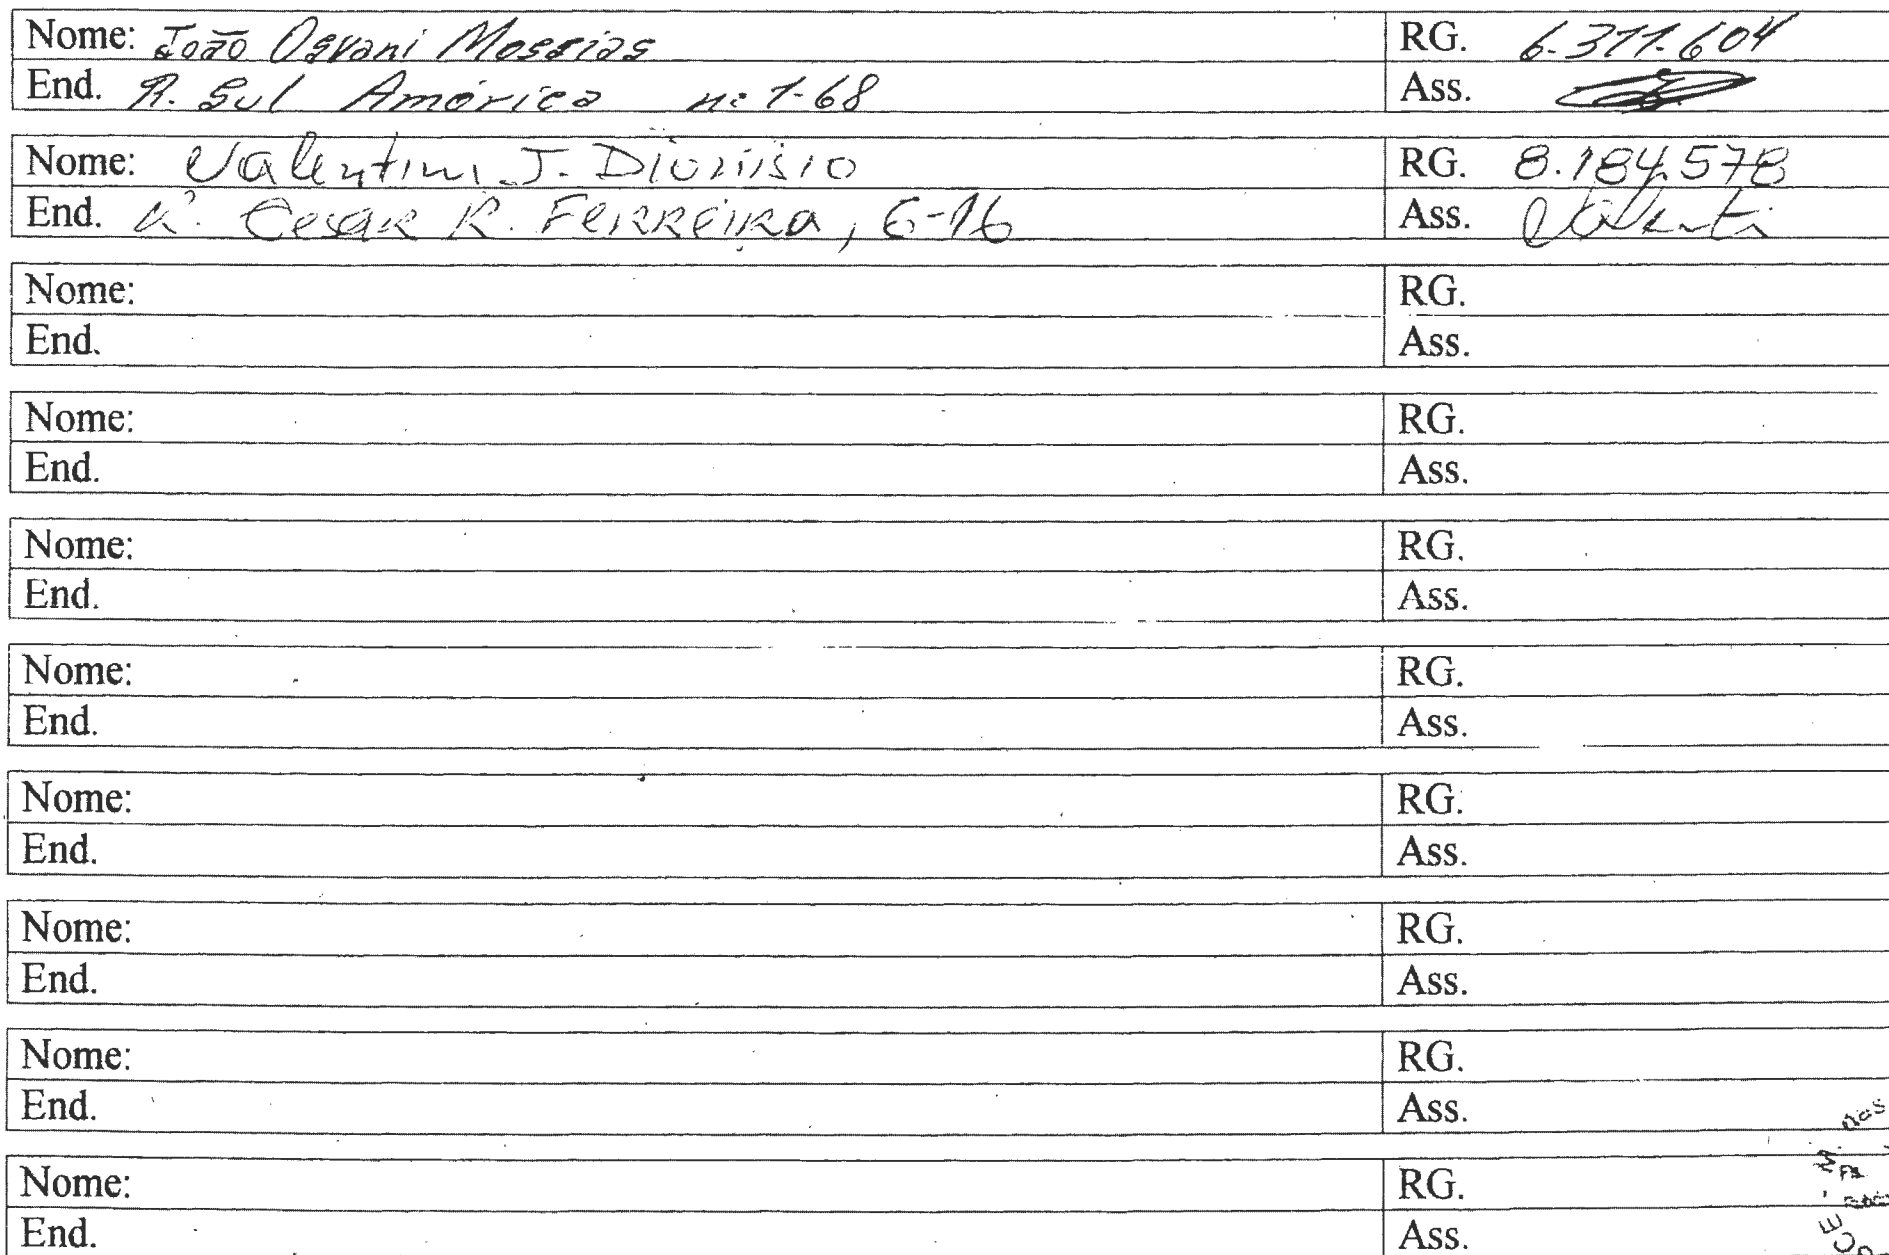 Nome: João Osvani Messias RG. 6.311.604
End. R. Sul América nº 1-68 Ass.
Nome: Valentim J. Dionisio RG. 8.184.578
End. R. Cesar R. Ferreira, 6-16 Ass. Valenti
Nome: RG.
End. Ass.
Nome: RG.
End. Ass.
Nome: RG.
End. Ass.
Nome: RG.
End. Ass.
Nome: RG.
End. Ass.
Nome: RG.
End. Ass.
Nome: RG.
End. Ass.
Nome: RG.
End. Ass.